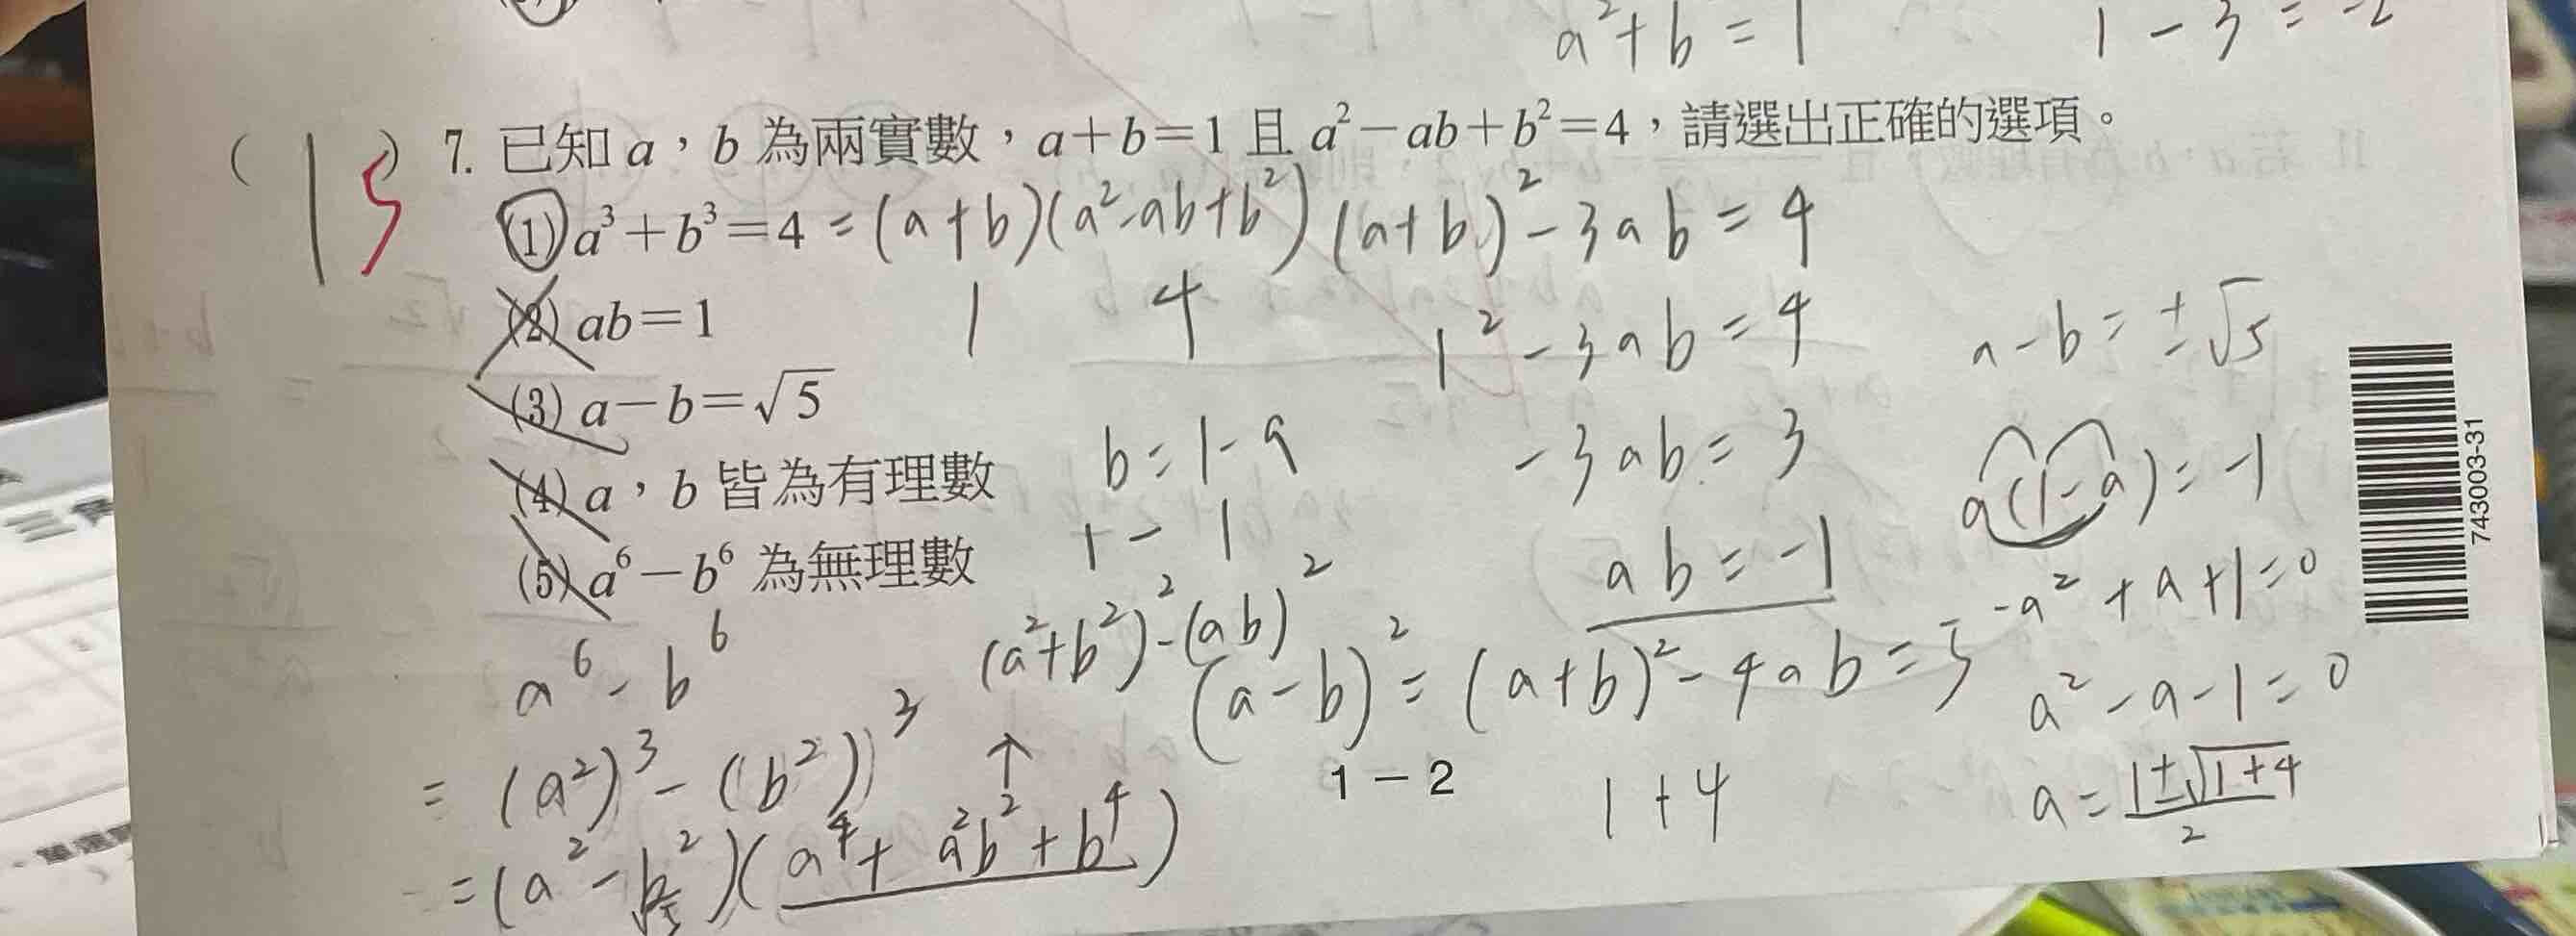 a²+b=1
1-3=-2
(15) 7. 已知 a，b 為兩實數，a+b=1 且 a²-ab+b²=4，請選出正確的選項。
(1) a³+b³=4 =(a+b)(a²-ab+b²) (a+b)²-3ab=4
1 4
(2) ab=1
1²-3ab=4
a-b=±√5
(3) a-b=√5
b=1-a
-3ab=3
a(1-a)=-1
(4) a，b 皆為有理數
1-1
ab=-1
-a²+a+1=0
(5) a⁶-b⁶ 為無理數
a⁶-b⁶
(a²+b²)²-(ab)²
(a-b)²=(a+b)²-4ab=5
a²-a-1=0
=(a²)³-(b²)³
↑
1-2
1+4
a=(1±√(1+4))/2
=(a²-b²)(a⁴+a²b²+b⁴)
743003-31